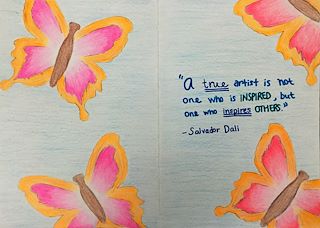 "A true artist is not
one who is INSPIRED, but
one who inspires OTHERS."
-Salvador Dali